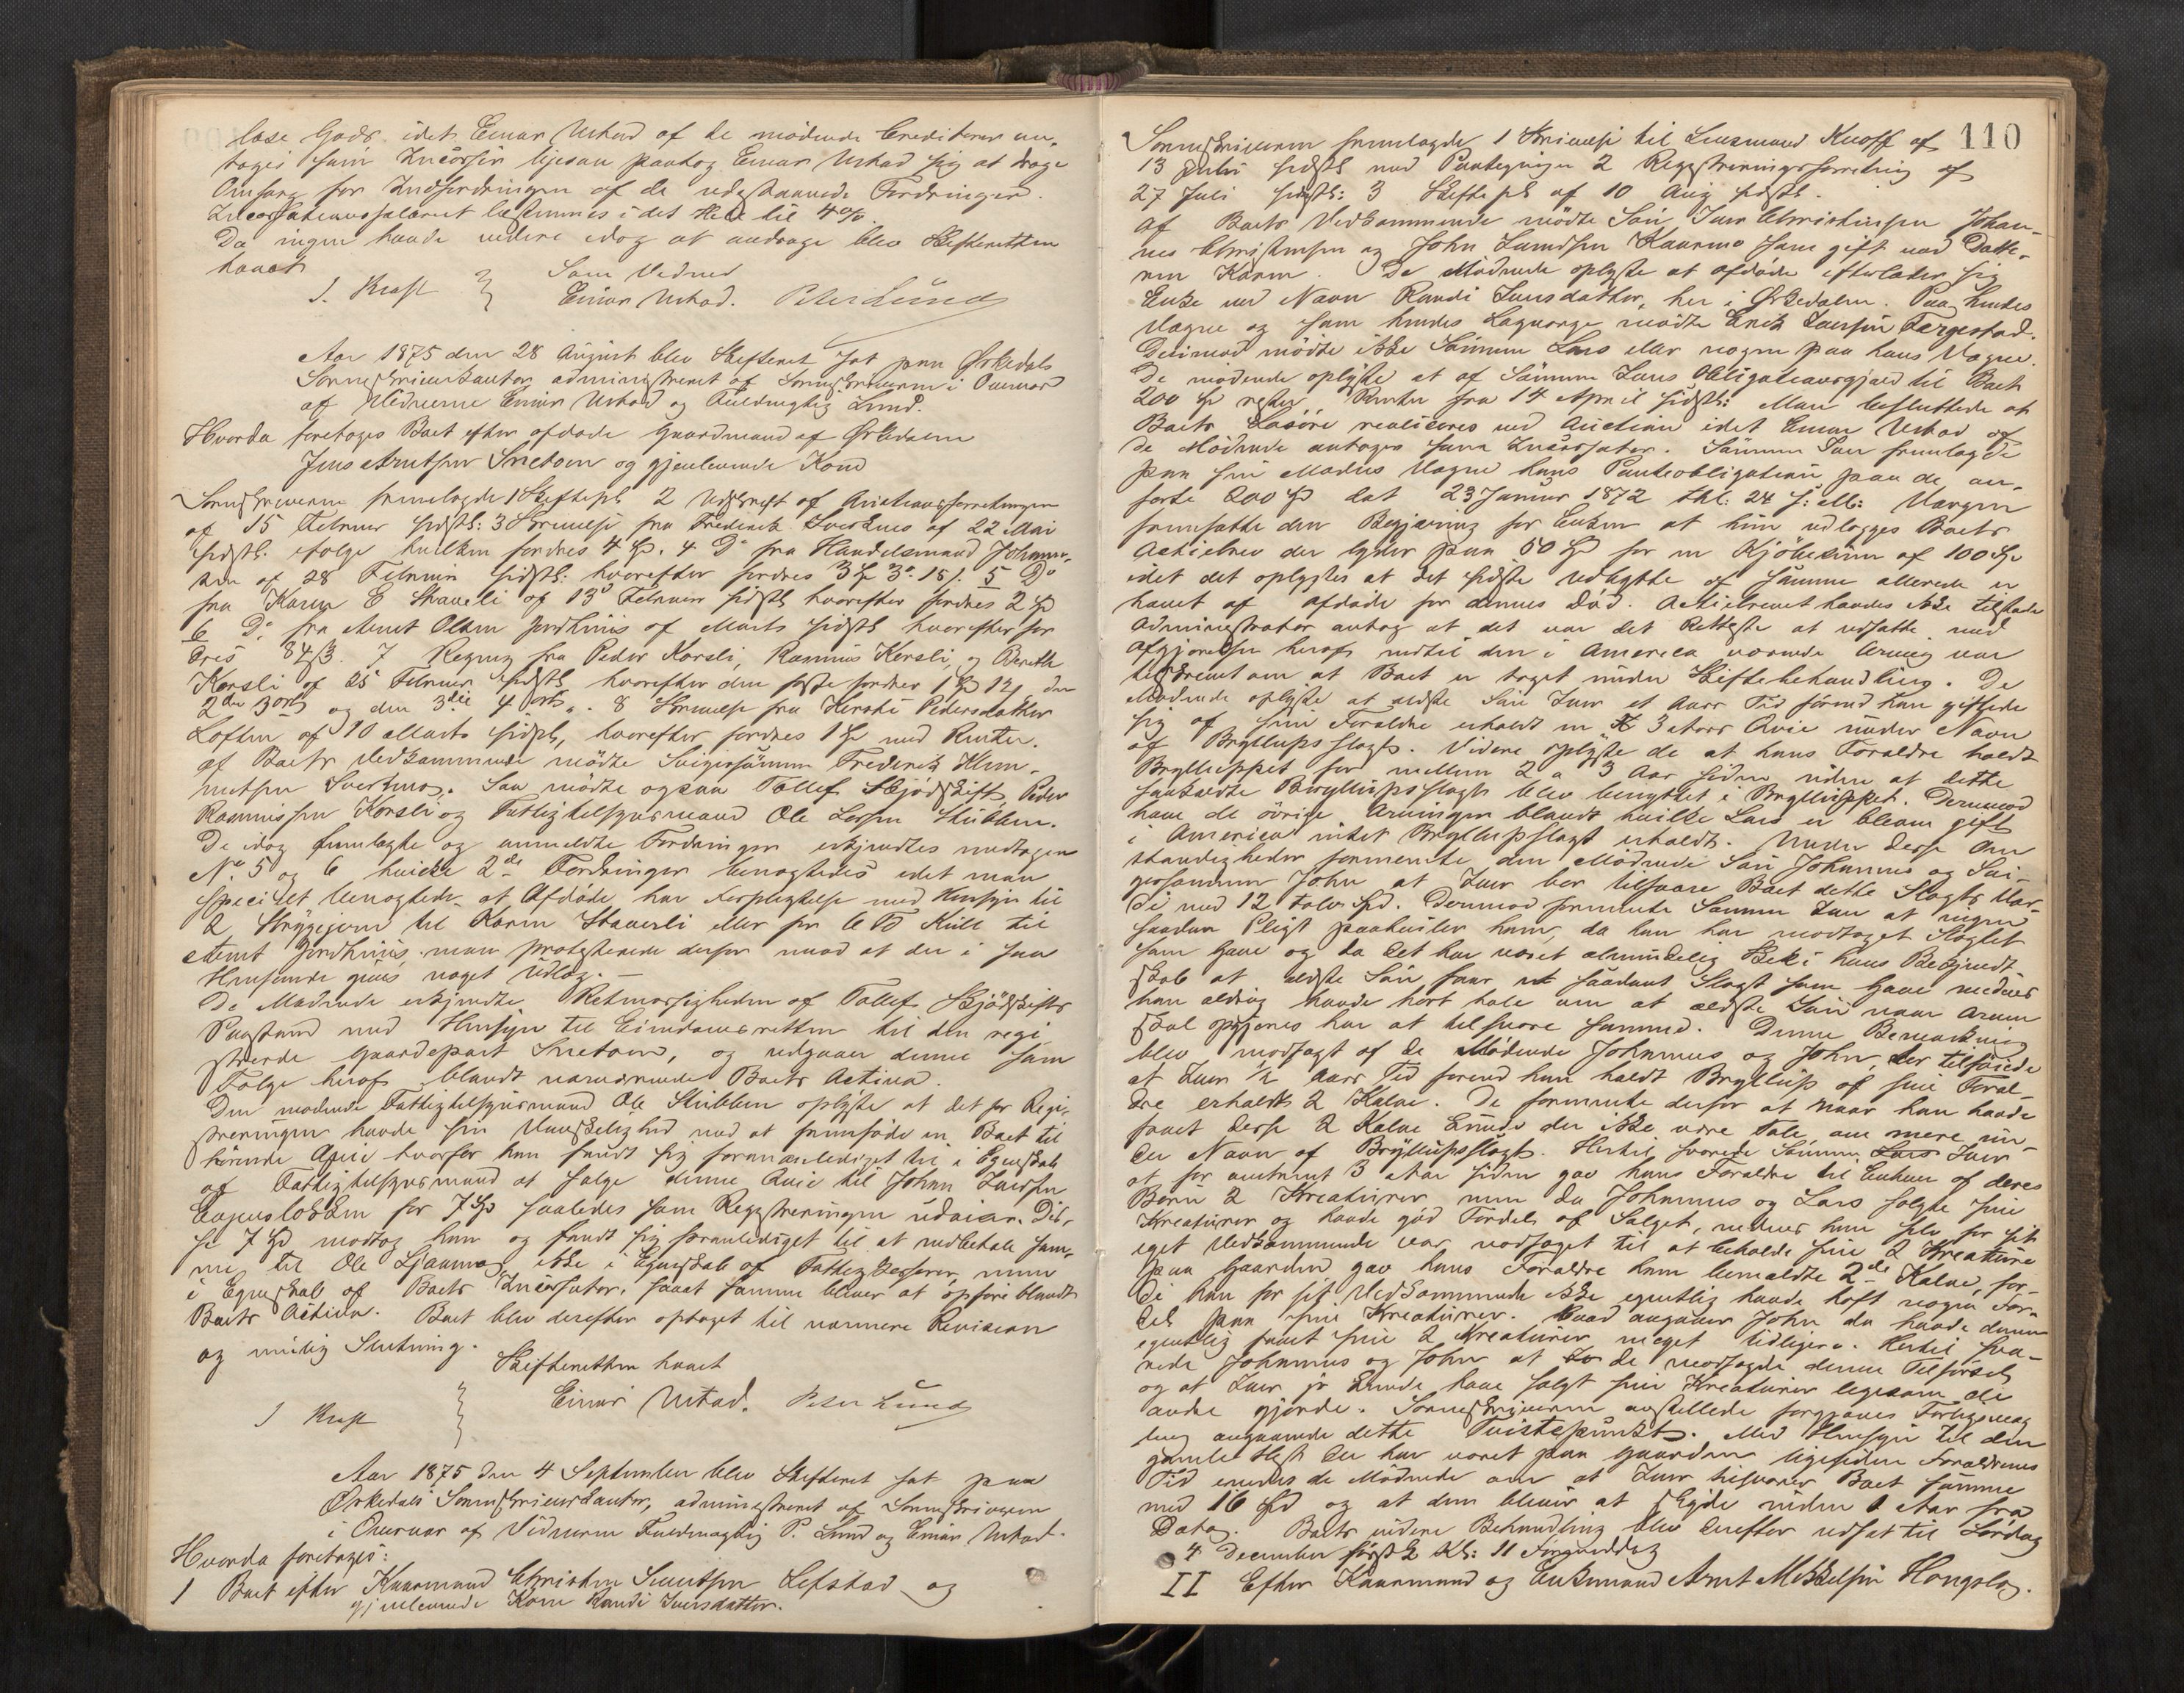 løse Gods idet Einar Urstad af de mødende Creditorer an-
toges som Incassator ligesaa paatog Einar Urstad sig at drage
Omsorg for Inddrivningen af de udestaaende Fordringer.
Incassationssalairet bestemmes i det Hele til 4%.
Da ingen havde videre idag at andrage blev Skifteretten
hævet
Som Vidner
J. Kraft Einar Urstad. Peter Lund
Aar 1875 den 28 August blev Skifteret sat paa Ørkedals
Sorenskriverkontor, administreret af Sorenskriveren i Overvær
af Vidnerne Einar Urstad og Fuldmægtig Lund.
Hvorda foretoges Boet efter afdøde Gaardmand af Ørkedalen
Jens Arntsen Snetoen og gjenlevende Kone
Sorenskriveren fremlagde 1 Skiftepk 2 Udskrift af Auctionsforretningen
af 15 Februar sidstl: 3 Skrivelse fra Frederik Sverkmo af 22 Mai
sidstl. ifølge hvilken fordres 4 Spd. 4 Do fra Handelsmand Johann-
sen af 28 Februar sidstl: hvorefter fordres 3 Spd 3 o. 18 s. 5 Do
fra Karen E Staveli af 13 Februar sidstl hvorefter fordres 2 Spd
6 Do fra Arnt Olsen Jordhuus af Marts sidstl hvorefter for-
dres 84 s. 7 Regning fra Peder Korsli, Rasmus Korsli og Berethe
Korsli af 25 Februar sidstl hvorefter den første fordrer 1 Spd 12 s, den
2den 3 ort og den 3die 4 ort. 8 Skrivelse fra Kirsti Pedersdatter
Loften af 10 Marts sidstl, hvorefter fordres 1 Spd med Renter.
Af Boets Vedkommende mødte Svigersønnen Frederik Klem-
metsen Sverkmo. Saa mødte ogsaa Tollef Skjødskift, Peder
Rasmussen Korsli og Fattigtilsynsmand Ole Larsen Stubben.
De idag fremlagte og anmeldte Fordringer erkjendtes undtagen
No 5 og 6 hvilke 2de Fordringer benegtedes idet man
specielt benegtede at Afdøde har Forpligtelse med Hensyn til
2 Strygejern til Karen Staverli eller for 6 Td Kul til
Arnt Jordhuus, man protesterede derfor mod at der i saa
Henseende gives noget Udlæg.
De Mødende erkjendte Retmæssigheden af Tollef Skjødskifts
Paastand med Hensyn til Eiendomsretten til den regi-
strerede Gaardepart Snetoen, og udgaaer denne som
Følge heraf blandt nærværende Boets Activa.
Den mødende Fattigtilsynsmand Ole Stubben oplyste at det før Regi-
streringen havde sin Vanskelighed med at fremføde en Boet til-
hørende Qvie hvorfor han fandt sig foranlediget til i Egenskab
af Fattigtilsynsmand at sælge denne Qvie til Johan Larsen
for 7 Spd saaledes som Registreringen udviser. Dis-
se 7 Spd modtog han og fandt sig foranlediget til at udbetale sam-
me til Ole Ljaamo ikke i Egenskab af Fattigkasserer, men
i Egenskab af Boets Incassator, saaat samme bliver at opføre blandt
Boets Activa. Boet blev derefter optaget til nærmere Revision
og mulig Slutning.
Skifteretten hævet
J Kraft Einar Urstad. Peter Lund
Aar 1875 den 4 September blev Skifteret sat paa
Ørkedals Sorenskriverkontor, administreret af Sorenskriveren
i Overvær af Vidnerne Fuldmægtig P. Lund og Einar Urstad.
Hvorda foretoges:
1 Boet efter Kaarmand Christen Lefstad og
gjenlevende Kone Randi Iversdatter.
110
Sorenskriveren fremlagde 1 Skrivelse til Lensmand Knoff af
13 Juli sidstl med Paategning 2 Registreringsforretning af
27 Juli sidstl: 3 Skiftepk af 10 Aug sidstl.
Af Boets Vedkommende mødte Søn Iver Christensen, Johan-
nes Christensen og John Kaarmo som gift med Datte-
ren Karen. De Mødende oplyste at afdøde efterlader sig
Enke ved Navn Randi Iversdatter, her i Ørkedalen. Paa hendes
Vegne og som hendes Laugværge mødte Erik Larsen Fergestad.
Derimod mødte ikke Sønnen Lars eller nogen paa hans Vegne.
De mødende oplyste at af Sønnen Ivers Obligationsgjæld til Boet
200 Spd rester Renter fra 14 April sidstl: Man besluttede at
Boets Løsøre realiseres ved Auction idet Einar Urstad af
de Mødende antoges som Incassator. Sønnen Iver fremlagde
paa sin Moders Vegne hans Panteobligation paa de an-
førte 200 Spd dat 23 Januar 1872 thl: 24 s: M: Værgen
fremsatte den Begjæring for Enken at hun udlægges Boets
Actiebrev der lyder paa 50 Spd for en Kjøbesum af 100 Spd
idet det oplystes at det sidste Udbytte af samme allerede er
hævet af afdøde før dennes Død. Actiebrevet havdes ikke tilstede
Administrator antog at det var det Retteste at udsætte med
Afgjørelsen heraf indtil den i America værende Arving var
beskrevet om at Boet er taget under Skiftebehandling. De
Mødende oplyste at ældste Søn Iver et Aars Tid førend han giftede
sig af sine Forældre erholdt en 3 Aars Qvie under Navn
af Bryllupsslagt. Videre oplyste de at hans Forældre holdt
Bryllupet for mellem 2 a 3 Aar siden uden at dette
saakaldte Bryllupsslagt blev benyttet i Brylluppet. Derimod
have de øvrige Arvinger blandt hvilke Lars er bleven gift
i America intet Bryllupsslagt erholdt. Under disse Om-
stændigheder formente den Mødende Søn Johannes og Svi-
gersønnen John at Iver bør tilsvare Boet dette Slagts Vær-
di med 12 tolv Spd. Derimod formente Sønnen Iver at ingen
saadan Pligt paahviler ham, da han har modtaget Slagtet
som Gave og da det har været almindelig Skik i hans Bekjendt-
skab at ældste Søn faar et saadant Slagt som Gave medens
han aldrig havde hørt tale om at ældste Søn naar Arven
skal opgjøres har at tilsvare samme. Denne Bemærkning
blev modsagt af de Mødende Johannes og John, der tilføiede
at Iver 1/2 Aars Tid førend han holdt Bryllup af sine Foræl-
dre erholdt 2 Kalve. De formente derfor at naar han havde
faaet disse 2 Kalve kunde der ikke være Tale om mere un-
der Navn af Bryllupsslagt. Hertil svarede Sønnen Lars Iver
at for omtrent 3 Aar siden gav hans Forældre til Enhver af deres
Børn 2 Kreaturer men da Johannes og Lars solgte sine
Kreaturer og havde god Fordel af Salget, medens han selv for sit
eget Vedkommende var nødsaget til at beholde sine 2 Kreature
paa Gaarden gav hans Forældre ham bemeldte 2de Kalve, for-
di han for sit Vedkommende ikke egentlig havde havt nogen For-
del paa sine Kreaturer. Hvad angaaer John da havde denne
egentlig faaet sine 2 Kreaturer meget tidligere. Hertil sva-
rede Johannes og John at de modsagde denne Tilførsel
og at Iver jo kunde have solgt sine Kreaturer ligesom de
andre gjorde. Sorenskriveren anstillede forgjæves Forligsmæg-
ling angaaende dette Tvistepunkt. Med Hensyn til den
gamle Hest der har været paa Gaarden ligesiden Forældrenes
Tid enedes de Mødende om at Iver tilsvarer Boet samme
med 16 Spd og at den bliver at skyde inden 1 Aar fra
Dato. Boets videre Behandling blev derefter udsat til Lørdag
4 December førstk Kl: 11 Formiddag
II Efter Kaarmand og Enkemand Arnt Mikkelsen Hongslo.